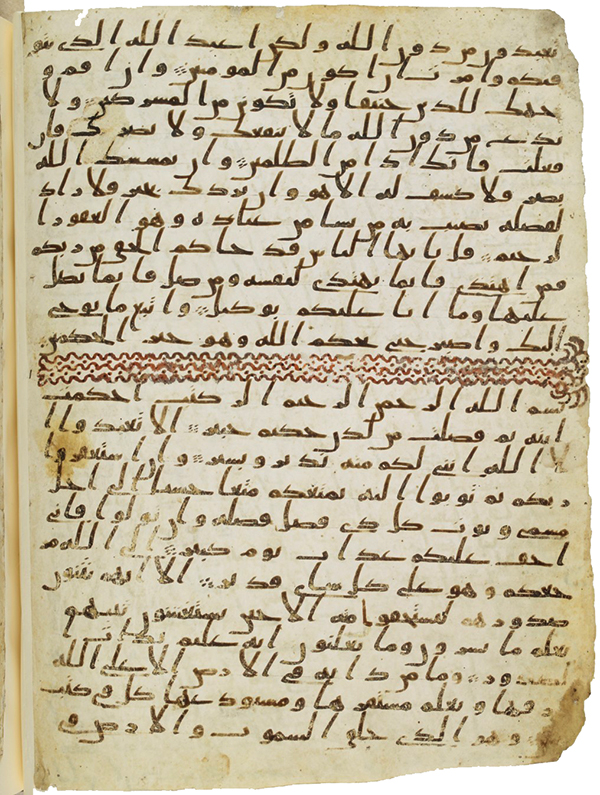 تعبدون من دون الله ولكن اعبد الله الذي يتو
فيكم وامرت ان اكون من المومنين وان اقم و
جهك للدين حنيفا ولا تكونن من المشركين ولا
تدع من دون الله ما لا ينفعك ولا يضرك فان
فعلت فانك اذا من الظلمين وان يمسسك الله
بضر فلا كشف له الا هو وان يردك بخير فلا راد
لفضله يصيب به من يشا من عباده وهو الغفور ا
لرحيم قل يايها الناس قد جاكم الحق من ربكم
فمن اهتدى فانما يهتدي لنفسه ومن ضل فانما يضل
عليها وما انا عليكم بوكيل واتبع ما يوحى
اليك واصبر حتى يحكم الله وهو خير الحكمين
بسم الله الرحمن الرحيم الر كتب احكمت
ايته ثم فصلت من لدن حكيم خبير الا تعبدوا ا
لا الله انني لكم منه نذير وبشير وان استغفروا
ربكم ثم توبوا اليه يمتعكم متعا حسنا الى اجل
مسمى ويوت كل ذي فضل فضله وان تولوا فاني
اخف عليكم عذاب يوم كبير الى الله مر
جعكم وهو على كل شاي قدير الا انهم يثنون
صدورهم ليستخفوا منه الا حين يستغشون ثيبهم
يعلم ما يسرون وما يعلنون انه عليم بذات ا
لصدور وما من دابه في الارض الا على الله
رزقها ويعلم مستقرها ومستودعها كل في كتب
وهو الذي خلق السموت والارض في